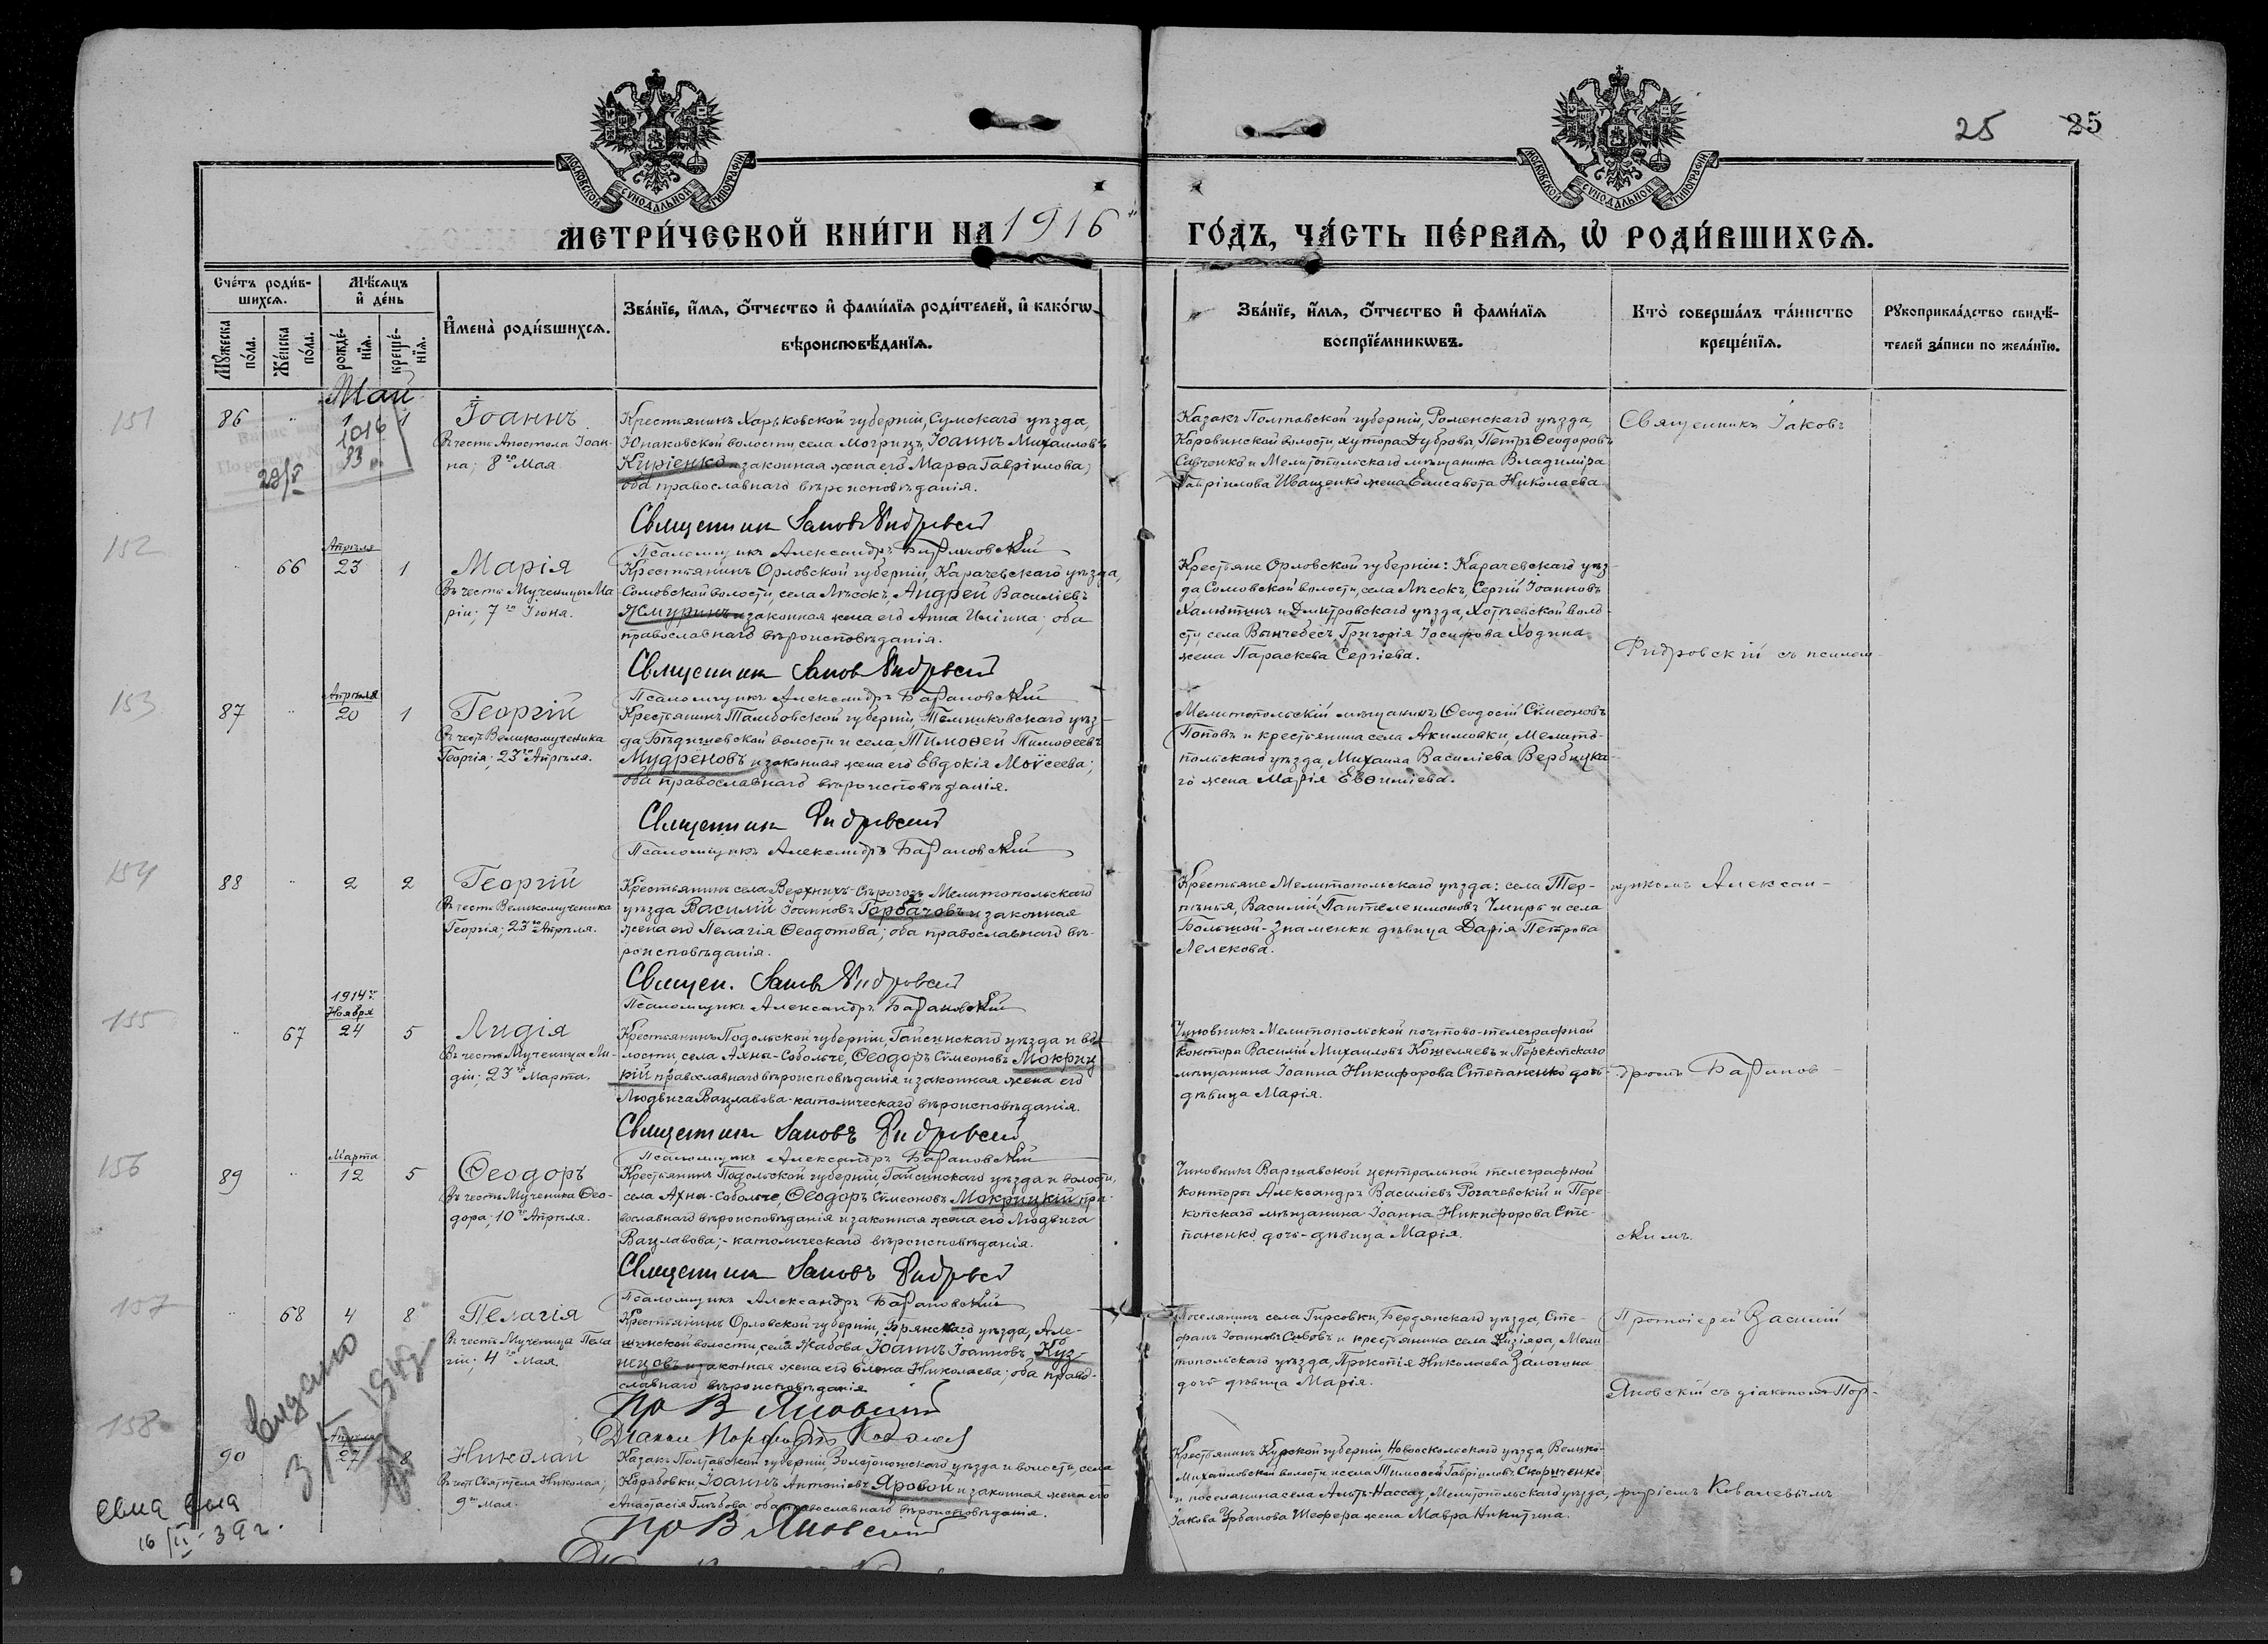 25 25
МОСКОВСКОЙ СУНОДАЛЬНОЙ ТИПОГРАФІИ
МОСКОВСКОЙ СУНОДАЛЬНОЙ ТИПОГРАФІИ
МЕТРИ́ЧЕСКОЙ КНИ́ГИ НА 1916
ГО́ДЪ, ЧА́СТЬ ПЕ́РВАѦ, Ѡ РОДИ́ВШИХСѦ.
Сче́тъ роди́в-
шихсѧ.
Мѹ́жеска по́ла.
Же́нска по́ла.
Мѣ́сѧцъ
и҆ де́нь
рожде́-
нїѧ.
креще́-
нїѧ.
И҆мена̀ роди́вшихсѧ.
Зва́нїе, и҆́мѧ, ѻ҆́тчество и҆ фами́лїѧ роди́телей, и҆ како́гѡ
вѣроисповѣ́данїѧ.
Зва́нїе, и҆́мѧ, ѻ҆́тчество и҆ фами́лїѧ
воспрїе́мникѡвъ.
Кто̀ соверша́лъ та́инство
креще́нїѧ.
Рѹкоприкла́дство свидѣ́-
телей за́писи по жела́нїю.
Май
151
86 " 1 1
Іоаннъ
Въ честь Апостола Іоан-
на; 8го Мая.
Крестьянинъ Харьковской губерніи, Сумскаго уѣзда,
Юнаковской волости, села Могрицъ, Іоаннъ Михаиловъ
Киріенко и законная жена его Марѳа Гавріилова;
оба православнаго вѣроисповѣданія.
Священникъ Іаковъ Фидровскій
Псаломщикъ Александръ Барановскій
Казакъ Полтавской губерніи, Роменскаго уѣзда,
Коровинской волости, хутора Дуброва, Петръ Ѳеодоровъ
Савченко и Мелитопольскаго мѣщанина Владиміра
Гавріилова Иващенко жена Елисавета Николаева.
Священникъ Іаковъ
152
Апрѣля
" 66 23 1
Марія
Въ честь Мученицы Ма-
ріи; 7го Іюня.
Крестьянинъ Орловской губерніи, Карачевскаго уѣзда,
Сомовской волости, села Лѣсокъ, Андрей Василіевъ
Жмуринъ и законная жена его Анна Иліина; оба
православнаго вѣроисповѣданія.
Священникъ Іаковъ Фидровскій
Псаломщикъ Александръ Барановскій
Крестьяне Орловской губерніи: Карачевскаго уѣз-
да, Сомовской волости, села Лѣсокъ, Сергій Іоанновъ
Халютинъ и Дмитровскаго уѣзда, Хотѣевской воло-
сти, села Григорія Іосифова Ходина
жена Параскева Сергіева.
Фидровскій съ псалом-
153
Апрѣля
87 " 20 1
Георгій
Въ честь Великомученика
Георгія; 23го Апрѣля.
Крестьянинъ Тамбовской губерніи, Темниковскаго уѣз-
да волости и села Тимоѳей Тимоѳеевъ
Мудреновъ и законная жена его Евдокія Моѵсеева;
оба православнаго вѣроисповѣданія.
Священникъ Фидровскій
Псаломщикъ Александръ Барановскій
Мелитопольскій мѣщанинъ Ѳеодосій Сѵмеоновъ
Поповъ и крестьянина села Акимовки, Мелито-
польскаго уѣзда, Михаила Василіева Вербицка-
го жена Марія Евѳиміева.
154
88 " 2 2
Георгій
Въ честь Великомученика
Георгія; 23го Апрѣля.
Крестьянинъ села Верхнихъ-Сѣрогозъ Мелитопольскаго
уѣзда Василій Іоанновъ Горбачовъ и законная
жена его Пелагія Ѳеодотова; оба православнаго вѣ-
роисповѣданія.
Священ. Іаковъ Фидровскій
Псаломщикъ Александръ Барановскій
Крестьяне Мелитопольскаго уѣзда: села Тер-
пѣнья, Василій Пантелеимоновъ и села
Большой-Знаменки дѣвица Дарія Петрова
Лелекова.
щикомъ Алексан-
155
1914 г.
Ноября
" 67 24 5
Лидія
Въ честь Мученицы Ли-
діи; 23го Марта.
Крестьянинъ Подольской губерніи, Гайсинскаго уѣзда и во-
лости, села Ахны-Собольче, Ѳеодоръ Сѵмеоновъ Мокриц-
кій православнаго вѣроисповѣданія и законная жена его
Людвига Вацлавова - католическаго вѣроисповѣданія.
Священникъ Іаковъ Фидровскій
Псаломщикъ Александръ Барановскій
Чиновникъ Мелитопольской почтово-телеграфной
конторы Василій Михаиловъ Кошелявъ и Перекопскаго
мѣщанина Іоанна Никифорова Степаненко дочь-
дѣвица Марія.
дромъ Баранов-
156
Марта
89 " 12 5
Ѳеодоръ
Въ честь Мученика Ѳео-
дора; 10го Апрѣля.
Крестьянинъ Подольской губерніи, Гайсинскаго уѣзда и волости,
села Ахны-Собольче, Ѳеодоръ Сѵмеоновъ Мокрицкій пра-
вославнаго вѣроисповѣданія и законная жена его Людвига
Вацлавова; - католическаго вѣроисповѣданія.
Священникъ Іаковъ Фидровскій
Псаломщикъ Александръ Барановскій
Чиновникъ Варшавской центральной телеграфной
конторы Александръ Василіевъ Рогачевскій и Пере-
копскаго мѣщанина Іоанна Никифорова Сте-
паненко дочь-дѣвица Марія.
скимъ.
157
" 68 4 8
Пелагія
Въ честь Мученицы Пела-
гіи; 4го Мая.
Крестьянинъ Орловской губерніи, Брянскаго уѣзда, Але-
шинской волости, села Жабова, Іоаннъ Іоанновъ Куз-
нецовъ и законная жена его Елена Николаева; оба право-
славнаго вѣроисповѣданія.
Пр В Яновскій
Діаконъ Порфирій Ковалевъ
Поселянинъ села Гирсовки, Бердянскаго уѣзда, Сте-
фанъ Іоанновъ и крестьянина села Кизіяра, Мели-
топольскаго уѣзда, Прокопія Николаева Залогина
дочь дѣвица Марія.
Протоіерей Василій
Яновскій съ діакономъ Пор-
158
Апрѣля
90 27 8
Николай
Въ честь Святителя Николая;
9го Мая.
Казакъ Полтавской губерніи, Золотоношскаго уѣзда и волости, села
Коробовки, Іоаннъ Антоніевъ Яровой и законная жена его
Анастасія Глѣбова: оба православнаго вѣроисповѣданія.
Пр В Яновскій
Крестьянинъ Курской губерніи, Новооскольскаго уѣзда, Велико-
Михайловской волости и села Тимоѳей Гавріиловъ Скориченко
и поселянина села Альтъ-Нассау, Мелитопольскаго уѣзда,
Іакова Урбанова Шефера жена Мавра Никитина.
фиріемъ Ковалевымъ
1016
33 г.
29/V
Выдано
16/II-39 г.